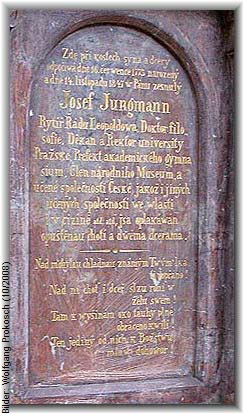 Zde při kostech syna a dcery
odpočívá dne 16. července 1773 narozený
a dne 14. listopadu 1847 w Pánu zesnulý
Josef Jungmann
Rytíř Řadu Leopoldowa, Doktor filo-
sofie, Děkan a Rektor university
Pražské, Prefekt akademického gymna-
sium, Člen národního Museum, a
učené společnosti české, jakož i jiných
učených společností we wlasti
w cizině jsa oplakáwán
opuštěnau chotí a dwěma dcerama.
Nad mohylau chladnau známým
Nad ní choť i dcer slzu roní w
želu swém
Tam k wýšinám oko tauhy plné
obráceno kwílí
Ten jediný od nich k
Bilder: Wolfgang Prokosch (10/2008)